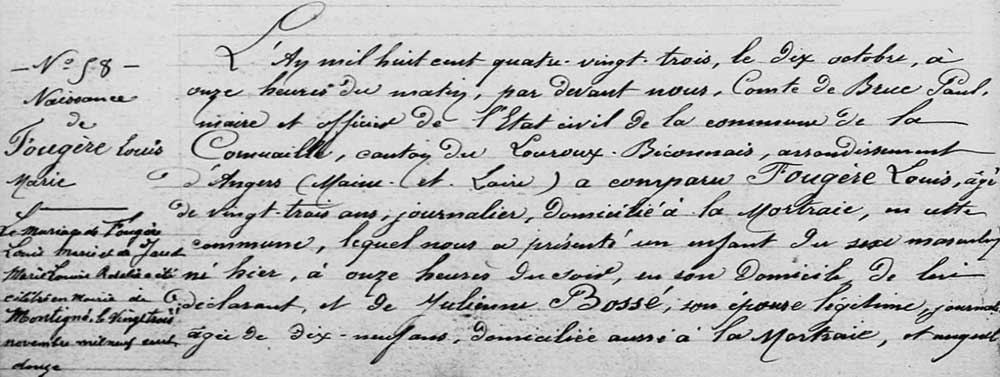 - N° 58 -
Naissance
de
Fougère Louis
Marie
Le Mariage de Fougère
Louis Marie et de Jaud
Marie Louise a été
célébré en Mairie de
Montigné, le vingt trois
novembre mil neuf cent
douze
L'An mil huit cent quatre-vingt-trois, le dix octobre, à
onze heures du matin, par devant nous, Comte de Bruc Paul,
maire et officier de l'Etat civil de la commune de la
Cornuaille, canton du Louroux-Béconnais, arrondissement
d'Angers (Maine-et-Loire) a comparu Fougère Louis, âgé
de vingt-trois ans, journalier, domicilié à la Mortraie, en cette
commune, lequel nous a présenté un enfant du sexe masculin
né hier, à onze heures du soir, en son domicile, de lui
déclarant, et de Julienne Bossé, son épouse légitime,
âgée de dix-neuf ans, domiciliée aussi à la Mortraie, et auquel